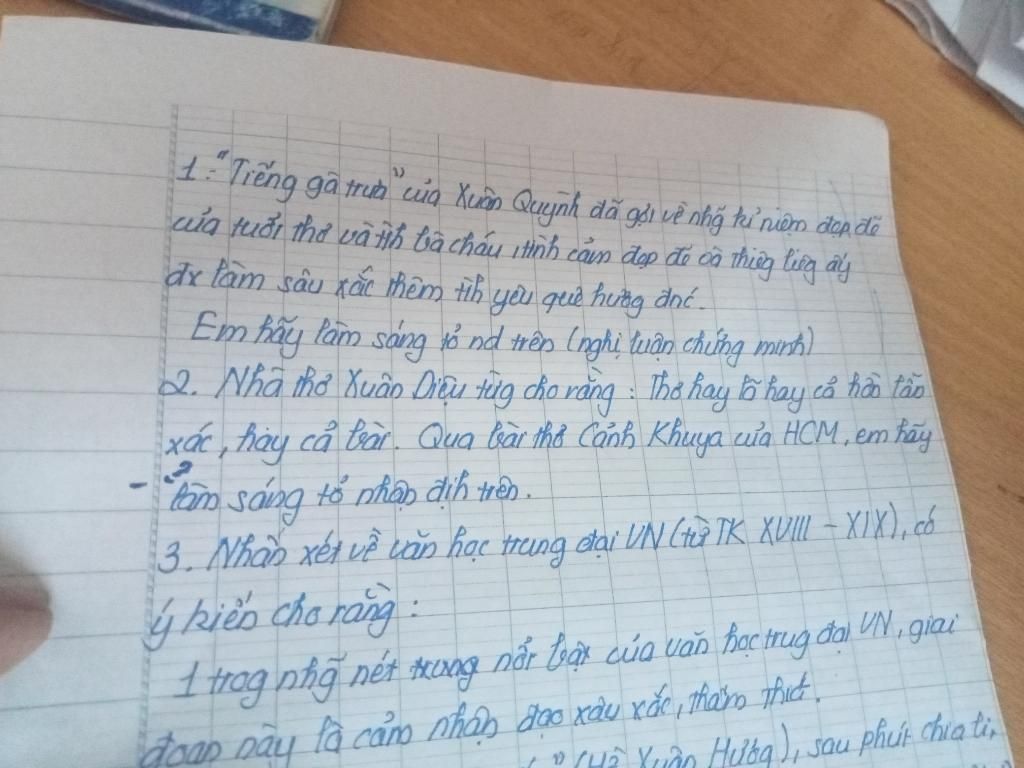 1. "Tiếng gà trưa" của Xuân Quỳnh đã gợi về nhg̃ kỉ niệm đẹp đẽ
của tuổi thơ và tìh bà cháu, tình cảm đẹp đẽ và thiêg liêg ấy
đx làm sâu xắc thêm tìh yêu quê hương đnć.
Em hãy làm sáng tỏ nd trên (nghị luận chứng minh)
2. Nhà thơ Xuân Diệu từg cho rằng: Thơ hay là hay cả hồn lẫn
xác, hay cả bài. Qua bài thơ Cảnh Khuya của HCM, em hãy
làm sáng tỏ nhận địh trên.
3. Nhận xét về văn học trung đại VN (từ TK XVIII - XIX), có
ý kiến cho rằng:
1 trog nhg̃ nét nổi bật của văn học trug đại VN, giai
đoạn này là cảm nhận đạo xâu xắc, thấm thít.
(Hồ Xuân Hương), sau phút chia li,